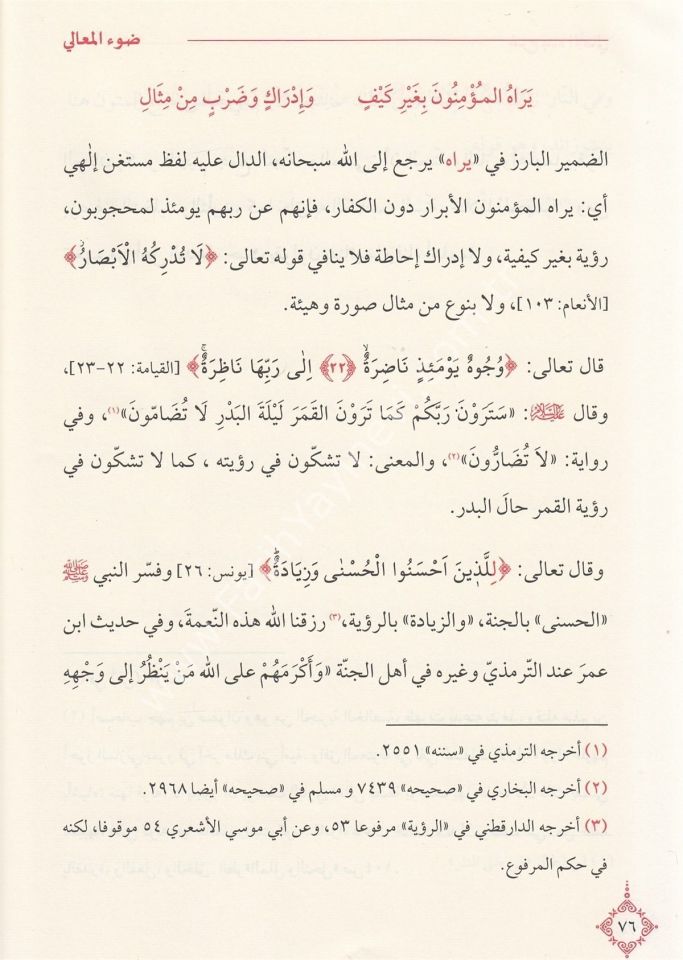 ضوء المعالي
يَرَاهُ المُؤْمِنُونَ بِغَيْرِ كَيْفٍ وَإِدْرَاكٍ وَضَرْبٍ مِنْ مِثَالِ
الضمير البارز في «يراه» يرجع إلى الله سبحانه، الدال عليه لفظ مستغن إلٰهي
أي: يراه المؤمنون الأبرار دون الكفار، فإنهم عن ربهم يومئذ لمحجوبون،
رؤية بغير كيفية، ولا إدراك إحاطة فلا ينافي قوله تعالى: ﴿لَا تُدْرِكُهُ الْاَبْصَارُ﴾
[الأنعام: ١٠٣]، ولا بنوع من مثال صورة وهيئة.
قال تعالى: ﴿وُجُوهٌ يَوْمَئِذٍ نَاضِرَةٌ ﴿٢٢﴾ اِلٰى رَبِّهَا نَاظِرَةٌ﴾ [القيامة: ٢٢-٢٣]،
وقال عليه السلام: «سَتَرَوْنَ رَبَّكُمْ كَمَا تَرَوْنَ القَمَرَ لَيْلَةَ البَدْرِ لَا تُضَامّونَ»(١)، وفي
رواية: «لاَ تُضَارُّونَ»(٢)، والمعنى: لا تشكّون في رؤيته ، كما لا تشكّون في
رؤية القمر حالَ البدر.
وقال تعالى: ﴿لِلَّذِينَ اَحْسَنُوا الْحُسْنٰى وَزِيَادَةٌ﴾ [يونس: ٢٦] وفسّر النبي ﷺ
«الحسنى» بالجنة، «والزيادة» بالرؤية،(٣) رزقنا الله هذه النّعمةَ، وفي حديث ابن
عمرَ عند التّرمذيّ وغيره في أهل الجنّة «وَأَكْرَمَهُمْ على الله مَنْ يَنْظُرُ إلى وَجْهِهِ
(١) أخرجه الترمذي في «سننه» ٢٥٥١.
(٢) أخرجه البخاري في «صحيحه» ٧٤٣٩ و مسلم في «صحيحه» أيضا ٢٩٦٨.
(٣) أخرجه الدارقطني في «الرؤية» مرفوعا ٥٣، وعن أبي موسي الأشعري ٥٤ موقوفا، لكنه
في حكم المرفوع.
٧٦